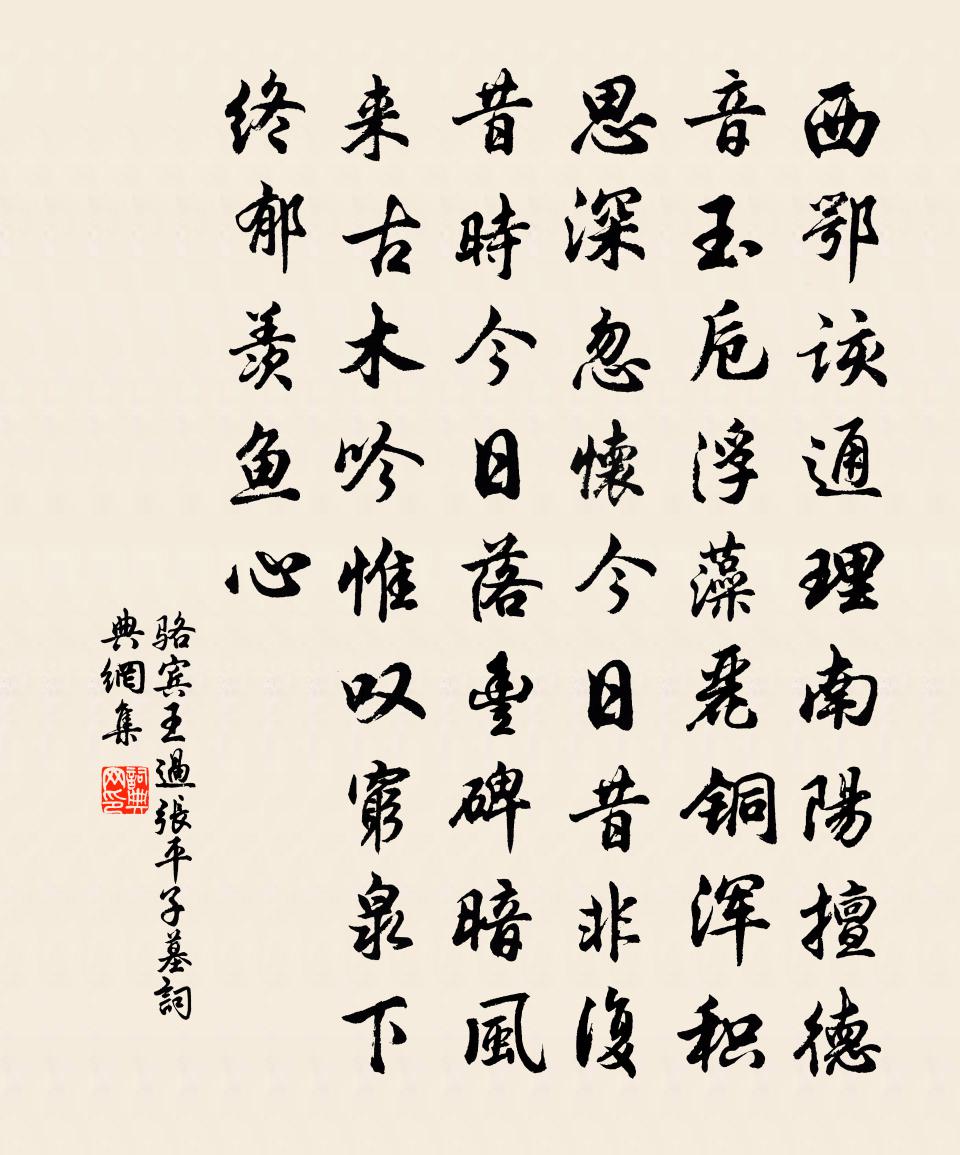 西鄂该通理南陽擅德
音玉卮浮藻麗铜浑积
思深忽懷今日昔非復
昔時今日落豊碑暗風
来古木吟惟叹窮泉下
终郁羡鱼心
骆宾王過張平子墓詞
典網集
詞典
网印